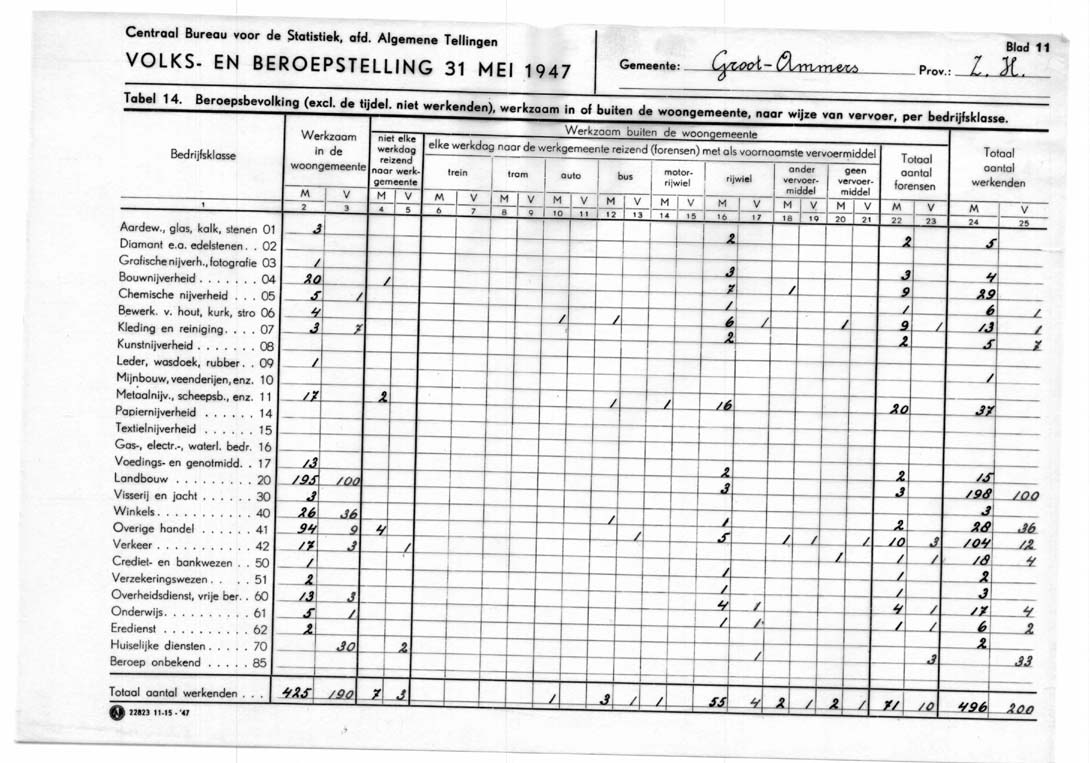 Centraal Bureau voor de Statistiek, afd. Algemene Tellingen
VOLKS- EN BEROEPSTELLING 31 MEI 1947
Gemeente: Groot-Ammers Prov.: Z. H.
Blad 11
Tabel 14. Beroepsbevolking (excl. de tijdel. niet werkenden), werkzaam in of buiten de woongemeente, naar wijze van vervoer, per bedrijfsklasse.
Bedrijfsklasse
Werkzaam
in de
woongemeente
Werkzaam buiten de woongemeente
niet elke
werkdag
reizend
naar werk-
gemeente
elke werkdag naar de werkgemeente reizend (forensen) met als voornaamste vervoermiddel
trein
tram
auto
bus
motor-
rijwiel
rijwiel
ander
vervoer-
middel
geen
vervoer-
middel
Totaal
aantal
forensen
Totaal
aantal
werkenden
M V M V M V M V M V M V M V M V M V M V M V M V
1 2 3 4 5 6 7 8 9 10 11 12 13 14 15 16 17 18 19 20 21 22 23 24 25
Aardew., glas, kalk, stenen 01 3 2 2 5
Diamant e.a. edelstenen . . 02
Grafische nijverh., fotografie 03 1 3 3 4
Bouwnijverheid . . . . . . . 04 20 1 7 1 9 29
Chemische nijverheid . . . 05 5 1 1 1 6 1
Bewerk. v. hout, kurk, stro 06 4 1 1 6 1 1 9 1 13 1
Kleding en reiniging . . . . 07 3 7 2 2 5 7
Kunstnijverheid . . . . . . . 08
Leder, wasdoek, rubber . . 09 1 1
Mijnbouw, veenderijen, enz. 10
Metaalnijv., scheepsb., enz. 11 17 2 1 1 16 20 37
Papiernijverheid . . . . . . 14
Textielnijverheid . . . . . . 15
Gas-, electr.-, waterl. bedr. 16
Voedings- en genotmidd. . 17 13 2 2 15
Landbouw . . . . . . . . . 20 195 100 3 3 198 100
Visserij en jacht . . . . . . 30 3 3
Winkels . . . . . . . . . . . 40 26 36 1 1 2 28 36
Overige handel . . . . . . 41 94 9 4 1 5 1 1 1 10 3 104 12
Verkeer . . . . . . . . . . . 42 17 3 1 1 1 1 18 4
Crediet- en bankwezen . . 50 1 1 1 2
Verzekeringswezen . . . . 51 2 1 1 3
Overheidsdienst, vrije ber. . 60 13 3 4 1 4 1 17 4
Onderwijs . . . . . . . . . . 61 5 1 1 1 1 1 6 2
Eredienst . . . . . . . . . . 62 2 2
Huiselijke diensten . . . . . 70 30 2 1 3 33
Beroep onbekend . . . . . 85
Totaal aantal werkenden . . . 425 190 7 3 1 3 1 1 55 4 2 1 2 1 71 10 496 200
22823 11-15 - '47